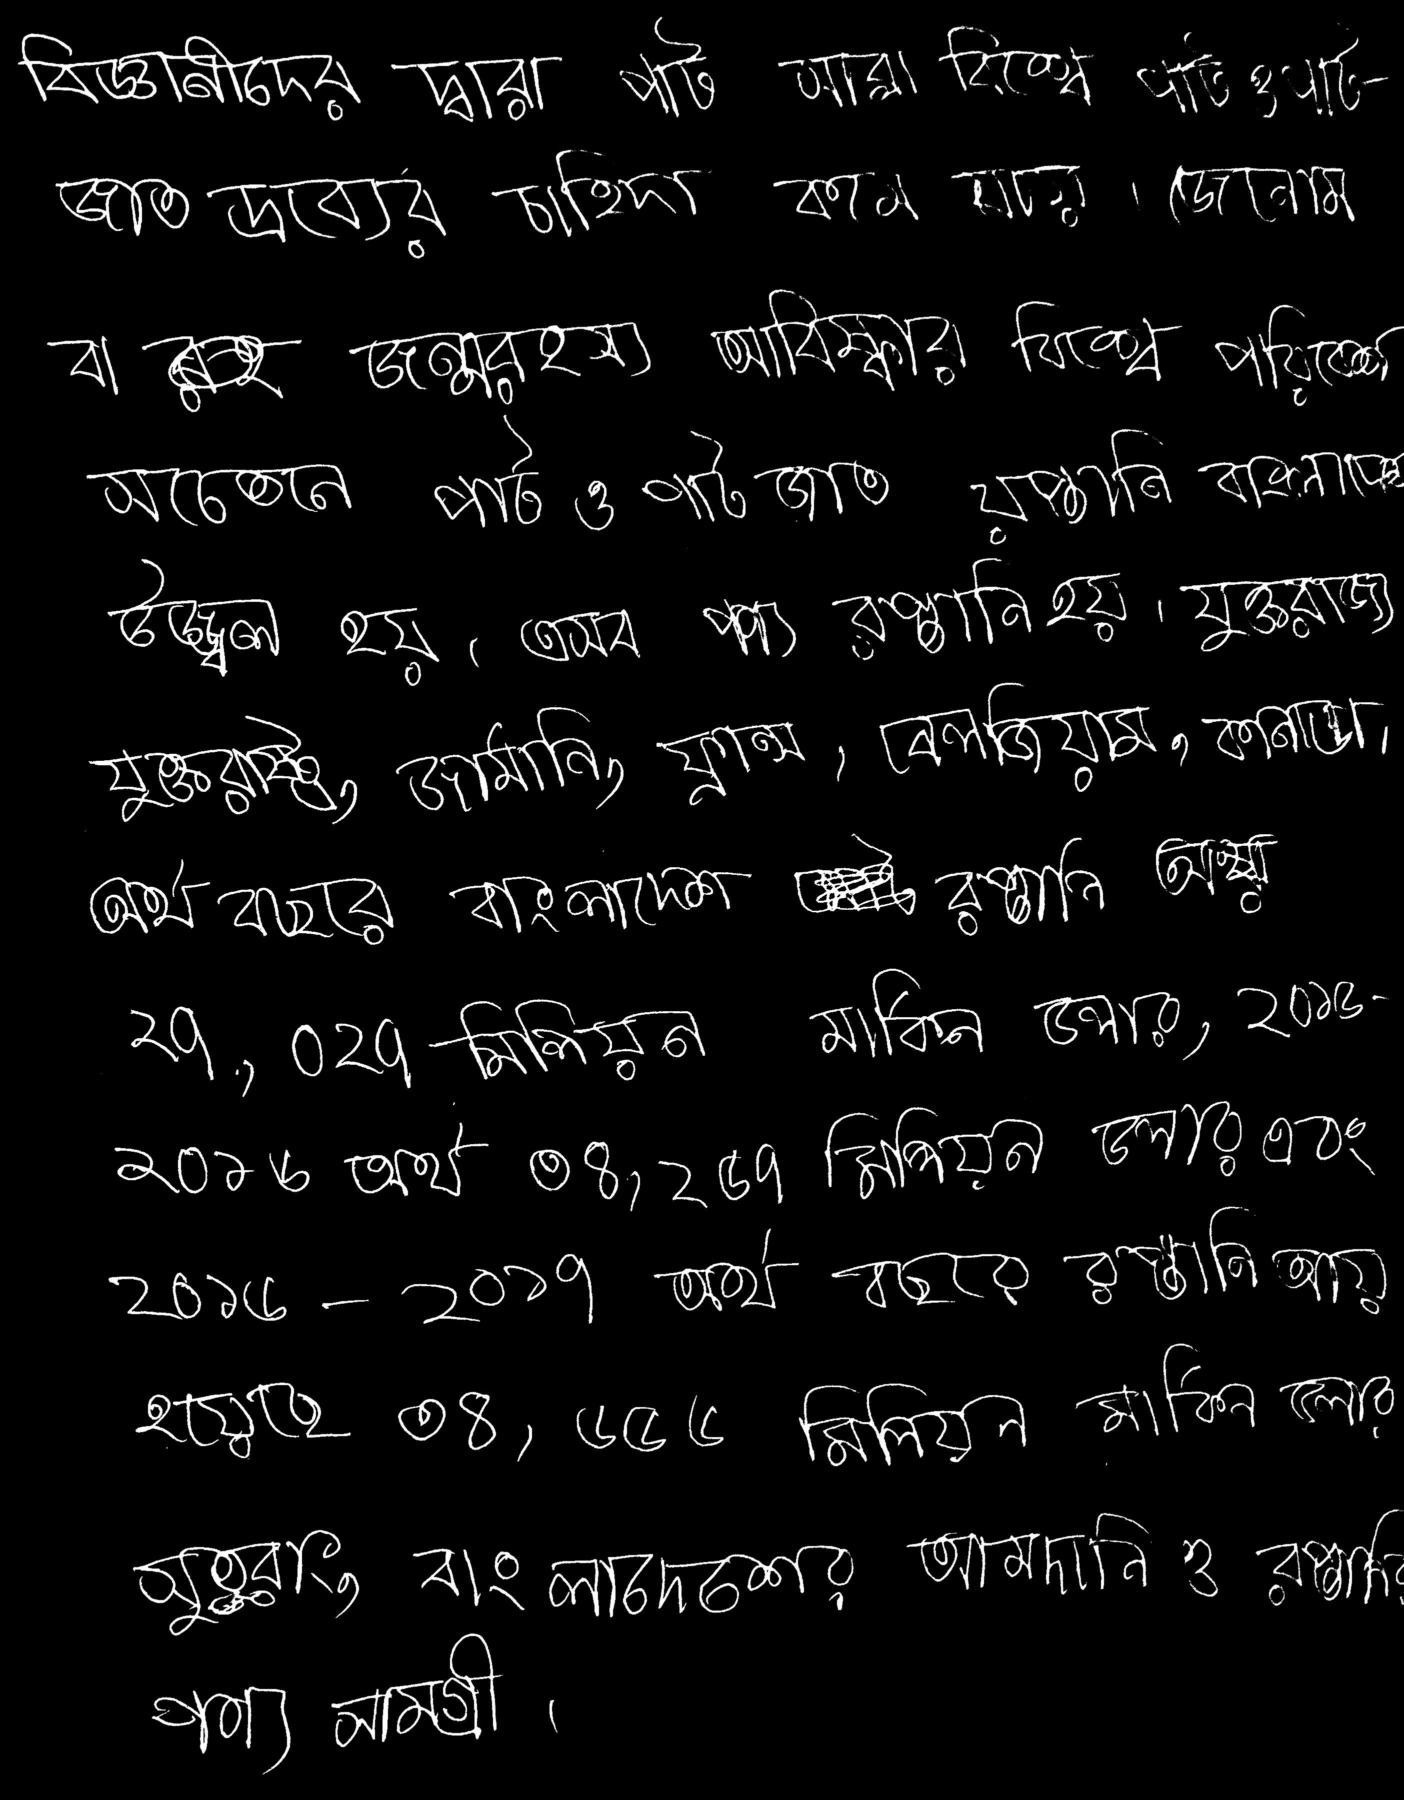 বিজ্ঞানীদের দ্বারা পাট সারা বিশ্বে পাট ও পাট-
জাত দ্রব্যের চাহিদা কমে যায়। জেনোম
বা জন্মরহস্য আবিস্কার বিশ্বে পরিবেশ
সচেতনে পাট ও পাট জাত রপ্তানি
উজ্জ্বল হয়। এসব পণ্য রপ্তানি হয়। যুক্তরাজ্য
যুক্তরাষ্ট্র, জার্মানি, ফ্রান্স, বেলজিয়াম, কানাডা।
অর্থ বছরে বাংলাদেশ রপ্তানি আয়
২৭., ০২৭ মিলিয়ন মার্কিন ডলার, ২০১৫-
২০১৬ অর্থ ৩৪,২৫৭ মিলিয়ন ডলার এবং
২০১৬ - ২০১৭ অর্থ বছরে রপ্তানি আয়
হয়েছে ৩৪, ৬৫৫৬ মিলিয়ন মার্কিন ডলার
সুতরাং, বাংলাদেশের আমদানি ও রপ্তানির
পণ্য সামগ্রী।